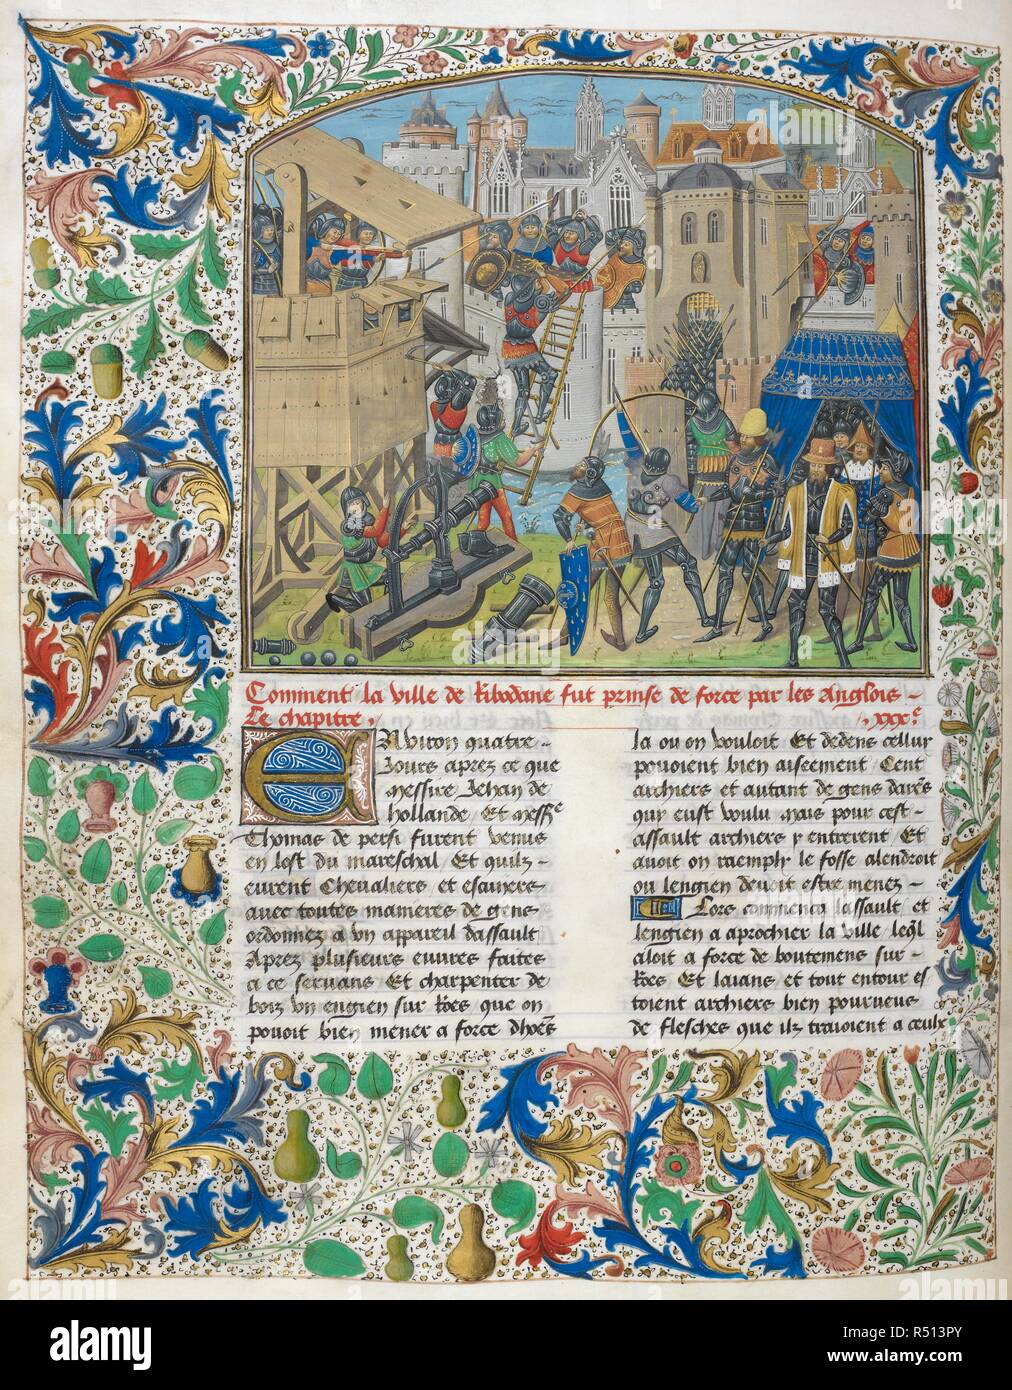 Comment la ville de Ribadane fut prinse de force par les Anglois
Le chapitre, xxx.e
Environ quatre
Jours aprez ce que
Messire Jehan de
hollande Et Messe
Thomas de persi furent venus
en lost du mareschal Et quilz
eurent Chevaliers et escuiers
avec toutes manieres de gens
ordonnez a un appareil dassault
Aprez plusieurs euvres faites
a ce servans Et charpenter de
boiz un engien sur Roes que on
pouoit bien mener a force dhoes
la ou on vouloit Et dedens cellui
pouoient bien aiseement Cent
archiers et autant de gens dares
qui eust voulu Mais pour cest
assault archiers y entrerent Et
avoit on raemply le fosse alendroit
ou lengien devoit estre menez
Lors commenca lassault et
lengien a aprochier la ville leql
aloit a force de boutemens sur
Roes Et laians et tout entour es
toient archiers bien pourveus
de flesches que ilz traioient a ceulx
alamy
Image ID: R513PY
www.alamy.com